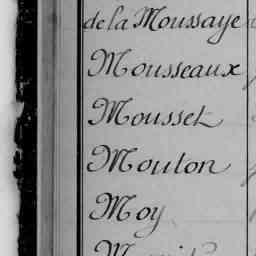 de la Moussaye
Mousseaux
Mousset
Mouton
Moy